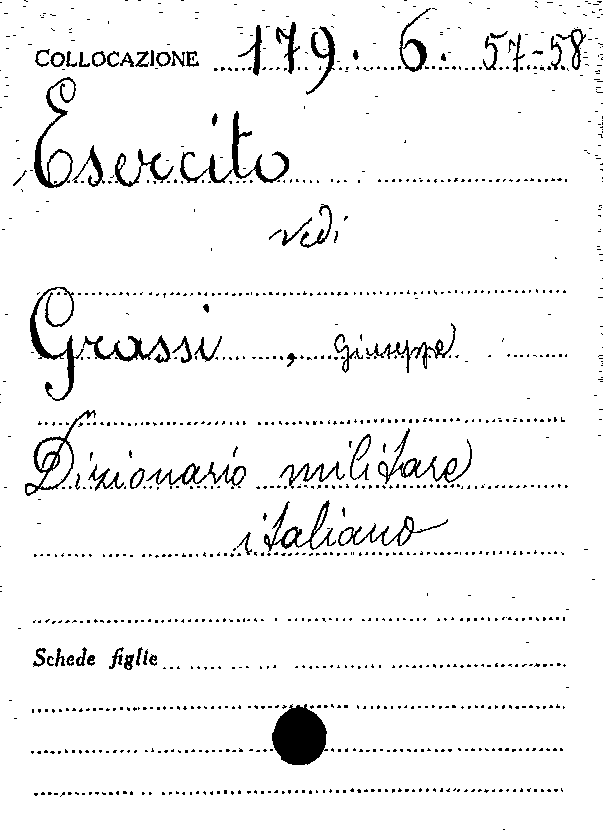 COLLOCAZIONE 179. 6. 57-58
Esercito
vedi
Grassi, Giuseppe
Dizionario militare
italiano
Schede figlie